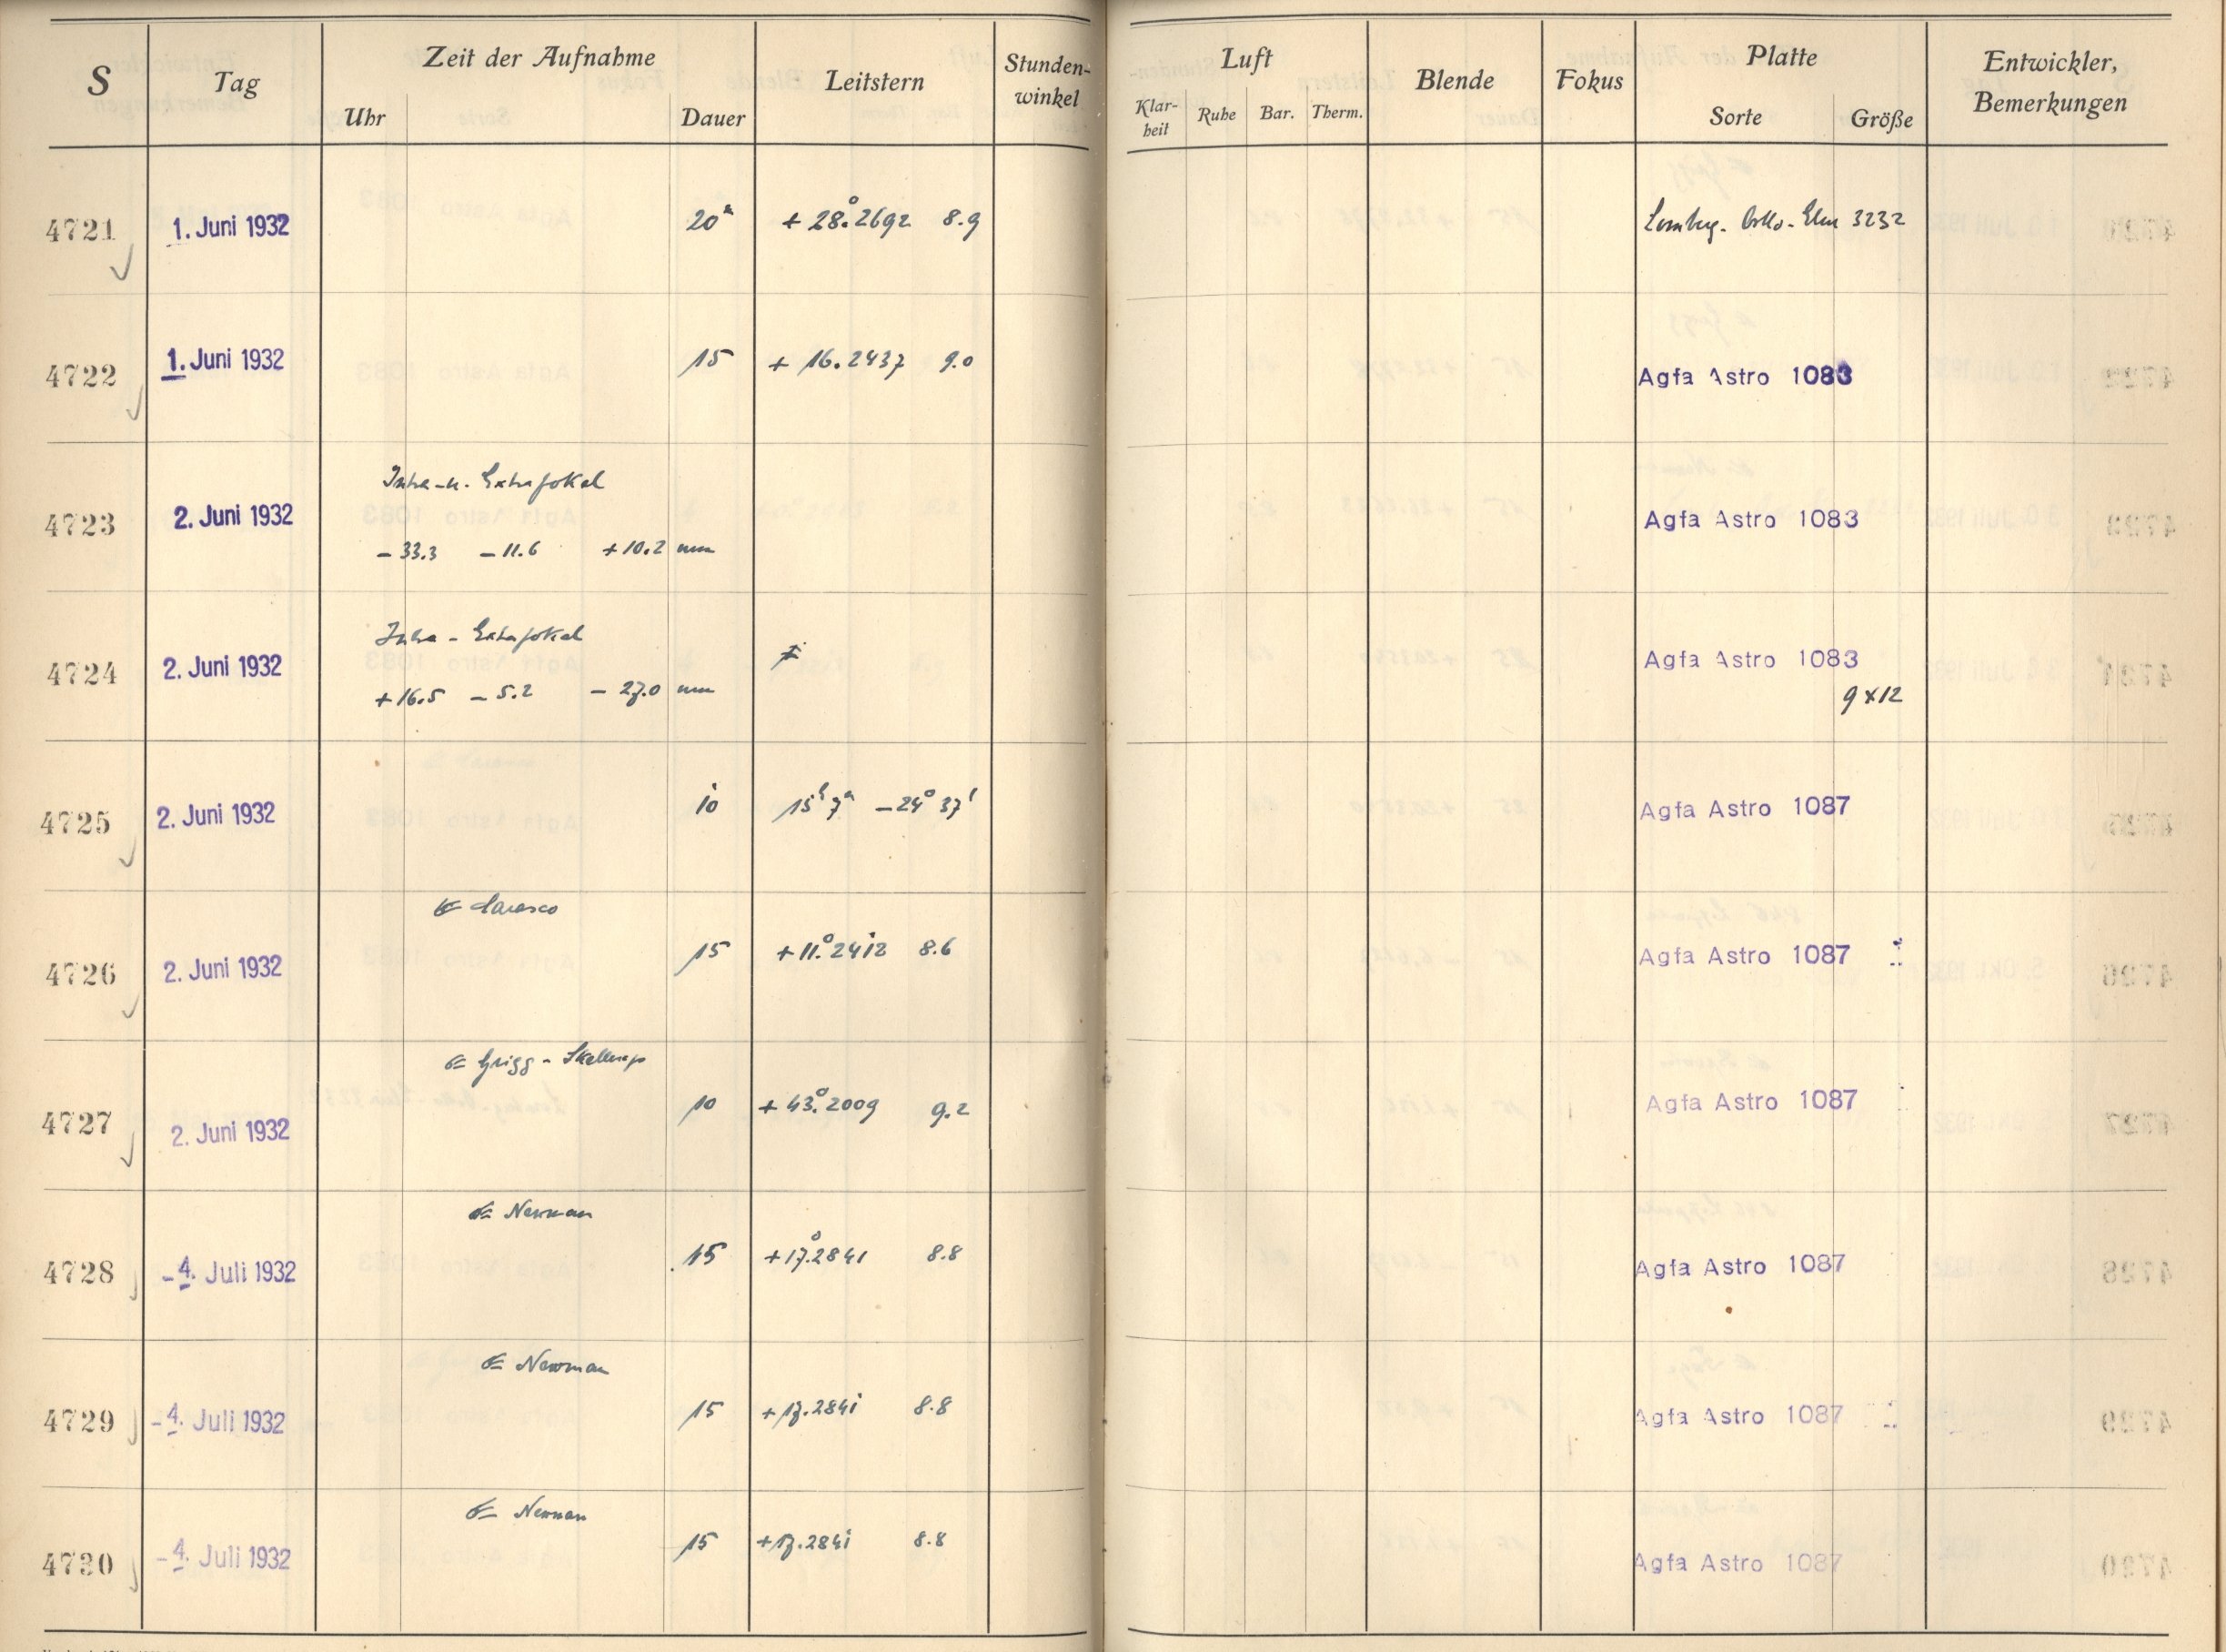 S Tag Zeit der Aufnahme Leitstern Stunden-winkel Luft Blende Fokus Platte Entwickler, Bemerkungen
Uhr Dauer Klar-heit Ruhe Bar. Therm. Sorte Größe
4721 1. Juni 1932 20m + 28°.2692 8.9 3232
4722 1. Juni 1932 15 + 16.2437 9.0 Agfa Astro 1083
Intra-u. Extrafokal
4723 2. Juni 1932 Agfa Astro 1083
- 33.3 - 11.6 + 10.2 mm
Intra - Extrafokal
4724 2. Juni 1932 Agfa Astro 1083
+ 16.5 - 5.2 - 27.0 mm 9 x 12
4725 2. Juni 1932 10 15h 7m - 24° 37' Agfa Astro 1087
Carasco
4726 2. Juni 1932 15 + 11°.2412 8.6 Agfa Astro 1087
Grigg - Skellerup
4727 2. Juni 1932 10 + 43°.2009 9.2 Agfa Astro 1087
Newman
4728 - 4. Juli 1932 15 + 17°.2841 8.8 Agfa Astro 1087
Newman
4729 - 4. Juli 1932 15 + 17.2841 8.8 Agfa Astro 1087
Newman
4730 - 4. Juli 1932 15 + 17.2841 8.8 Agfa Astro 1087